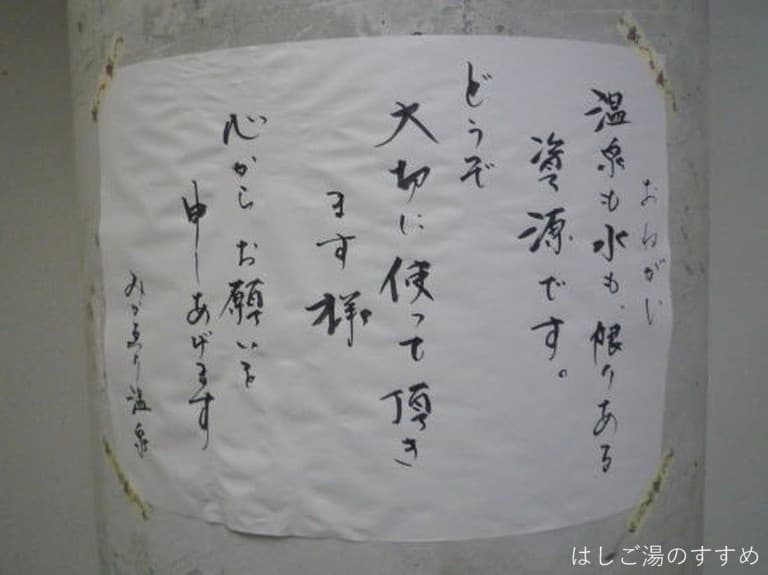 おねがい
温泉も水も、限りある
資源です。
どうぞ
大切に使って頂き
ます様
心からお願いを
申しあげます
温泉
はしご湯のすすめ